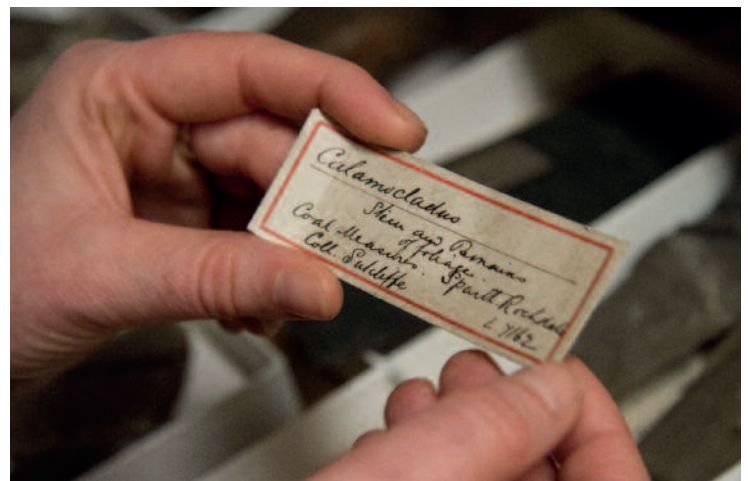 Calamocladus
Stem and Remains
of foliage.
Coal Measures. Sparth Rochdale
Coll. Sutcliffe
L 7162